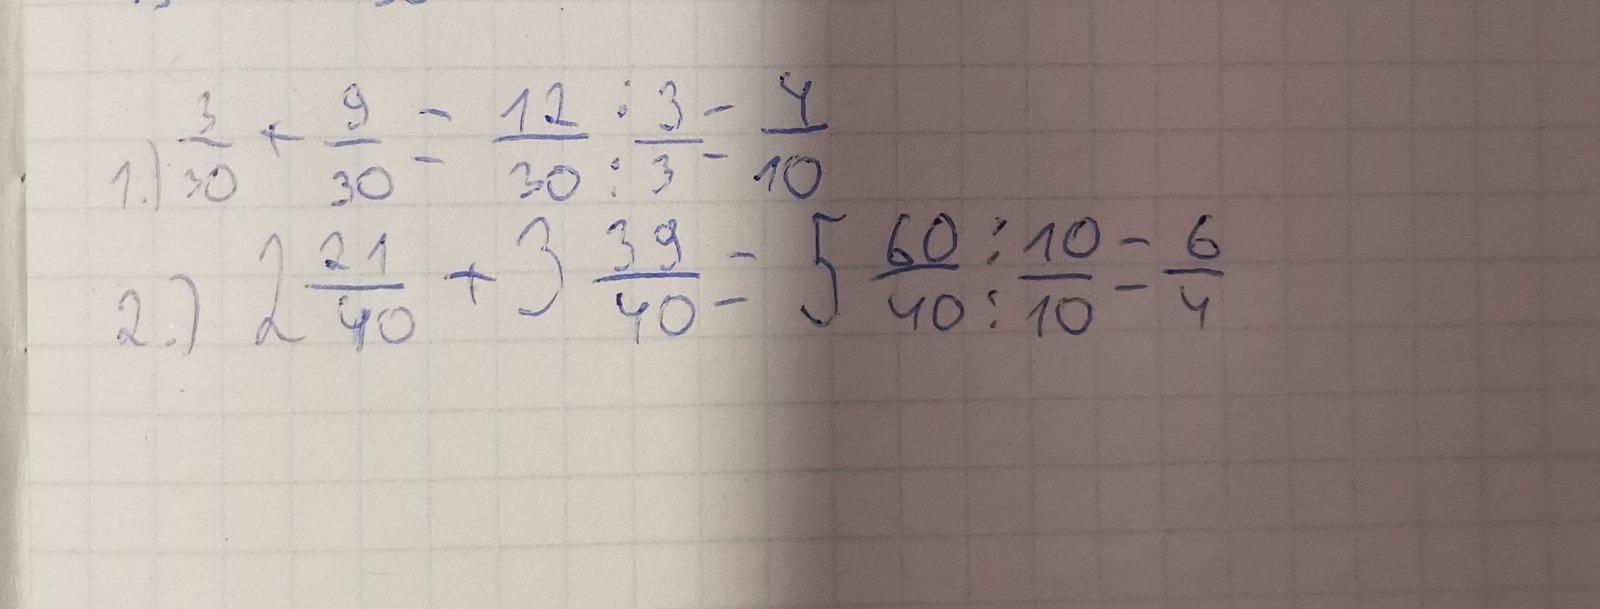 1.) 3/30 + 9/30 = 12/30 : 3/3 = 4/10
2.) 2 21/40 + 3 39/40 = 5 60/40 : 10/10 = 6/4